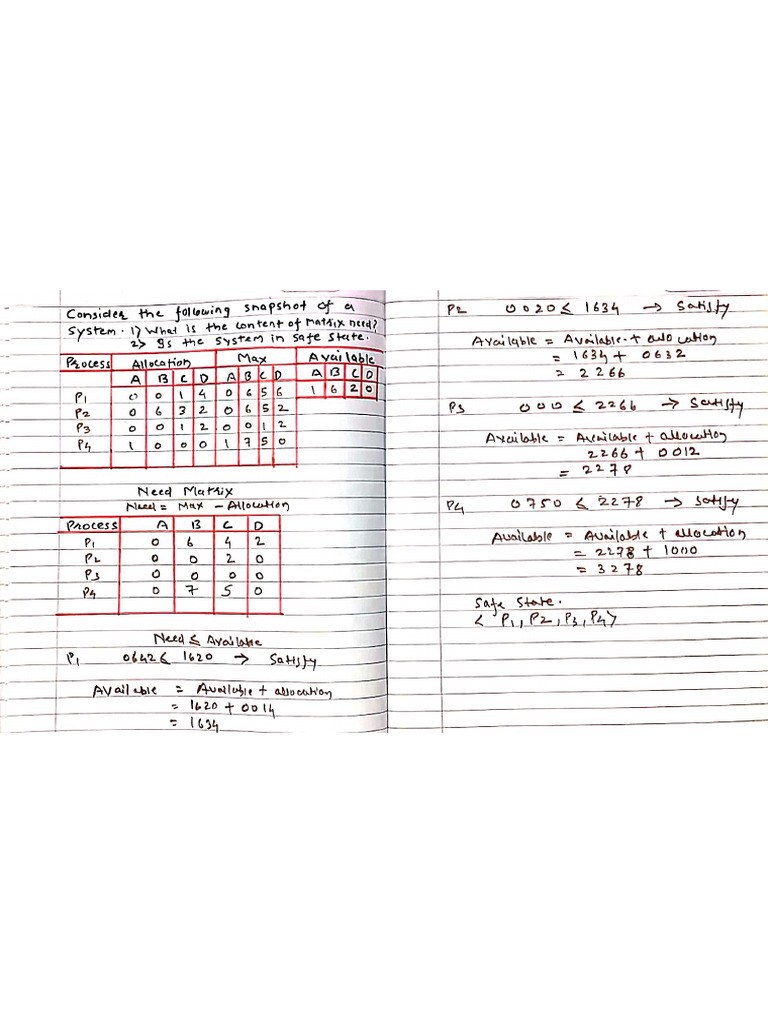 Consider the following snapshot of a
System. 1) What is the content of matrix need?
2) Is the System in Safe State.
Process Allocation Max Available
A B C D A B C D A B C D
P1 0 0 1 4 0 6 5 6 1 6 2 0
P2 0 6 3 2 0 6 5 2
P3 0 0 1 2 0 0 1 2
P4 1 0 0 0 1 7 5 0
Need Matrix
Need = Max - Allocation
Process A B C D
P1 0 6 4 2
P2 0 0 2 0
P3 0 0 0 0
P4 0 7 5 0
Need ≤ Available
P1 0642 ≤ 1620 → Satisfy
Available = Available + allocation
= 1620 + 0014
= 1634
P2 0020 ≤ 1634 → Satisfy
Available = Available + allocation
= 1634 + 0632
= 2266
P3 000 ≤ 2266 → Satisfy
Available = Available + allocation
2266 + 0012
= 2278
P4 0750 ≤ 2278 → Satisfy
Available = Available + allocation
= 2278 + 1000
= 3278
Safe State.
< P1, P2, P3, P4>